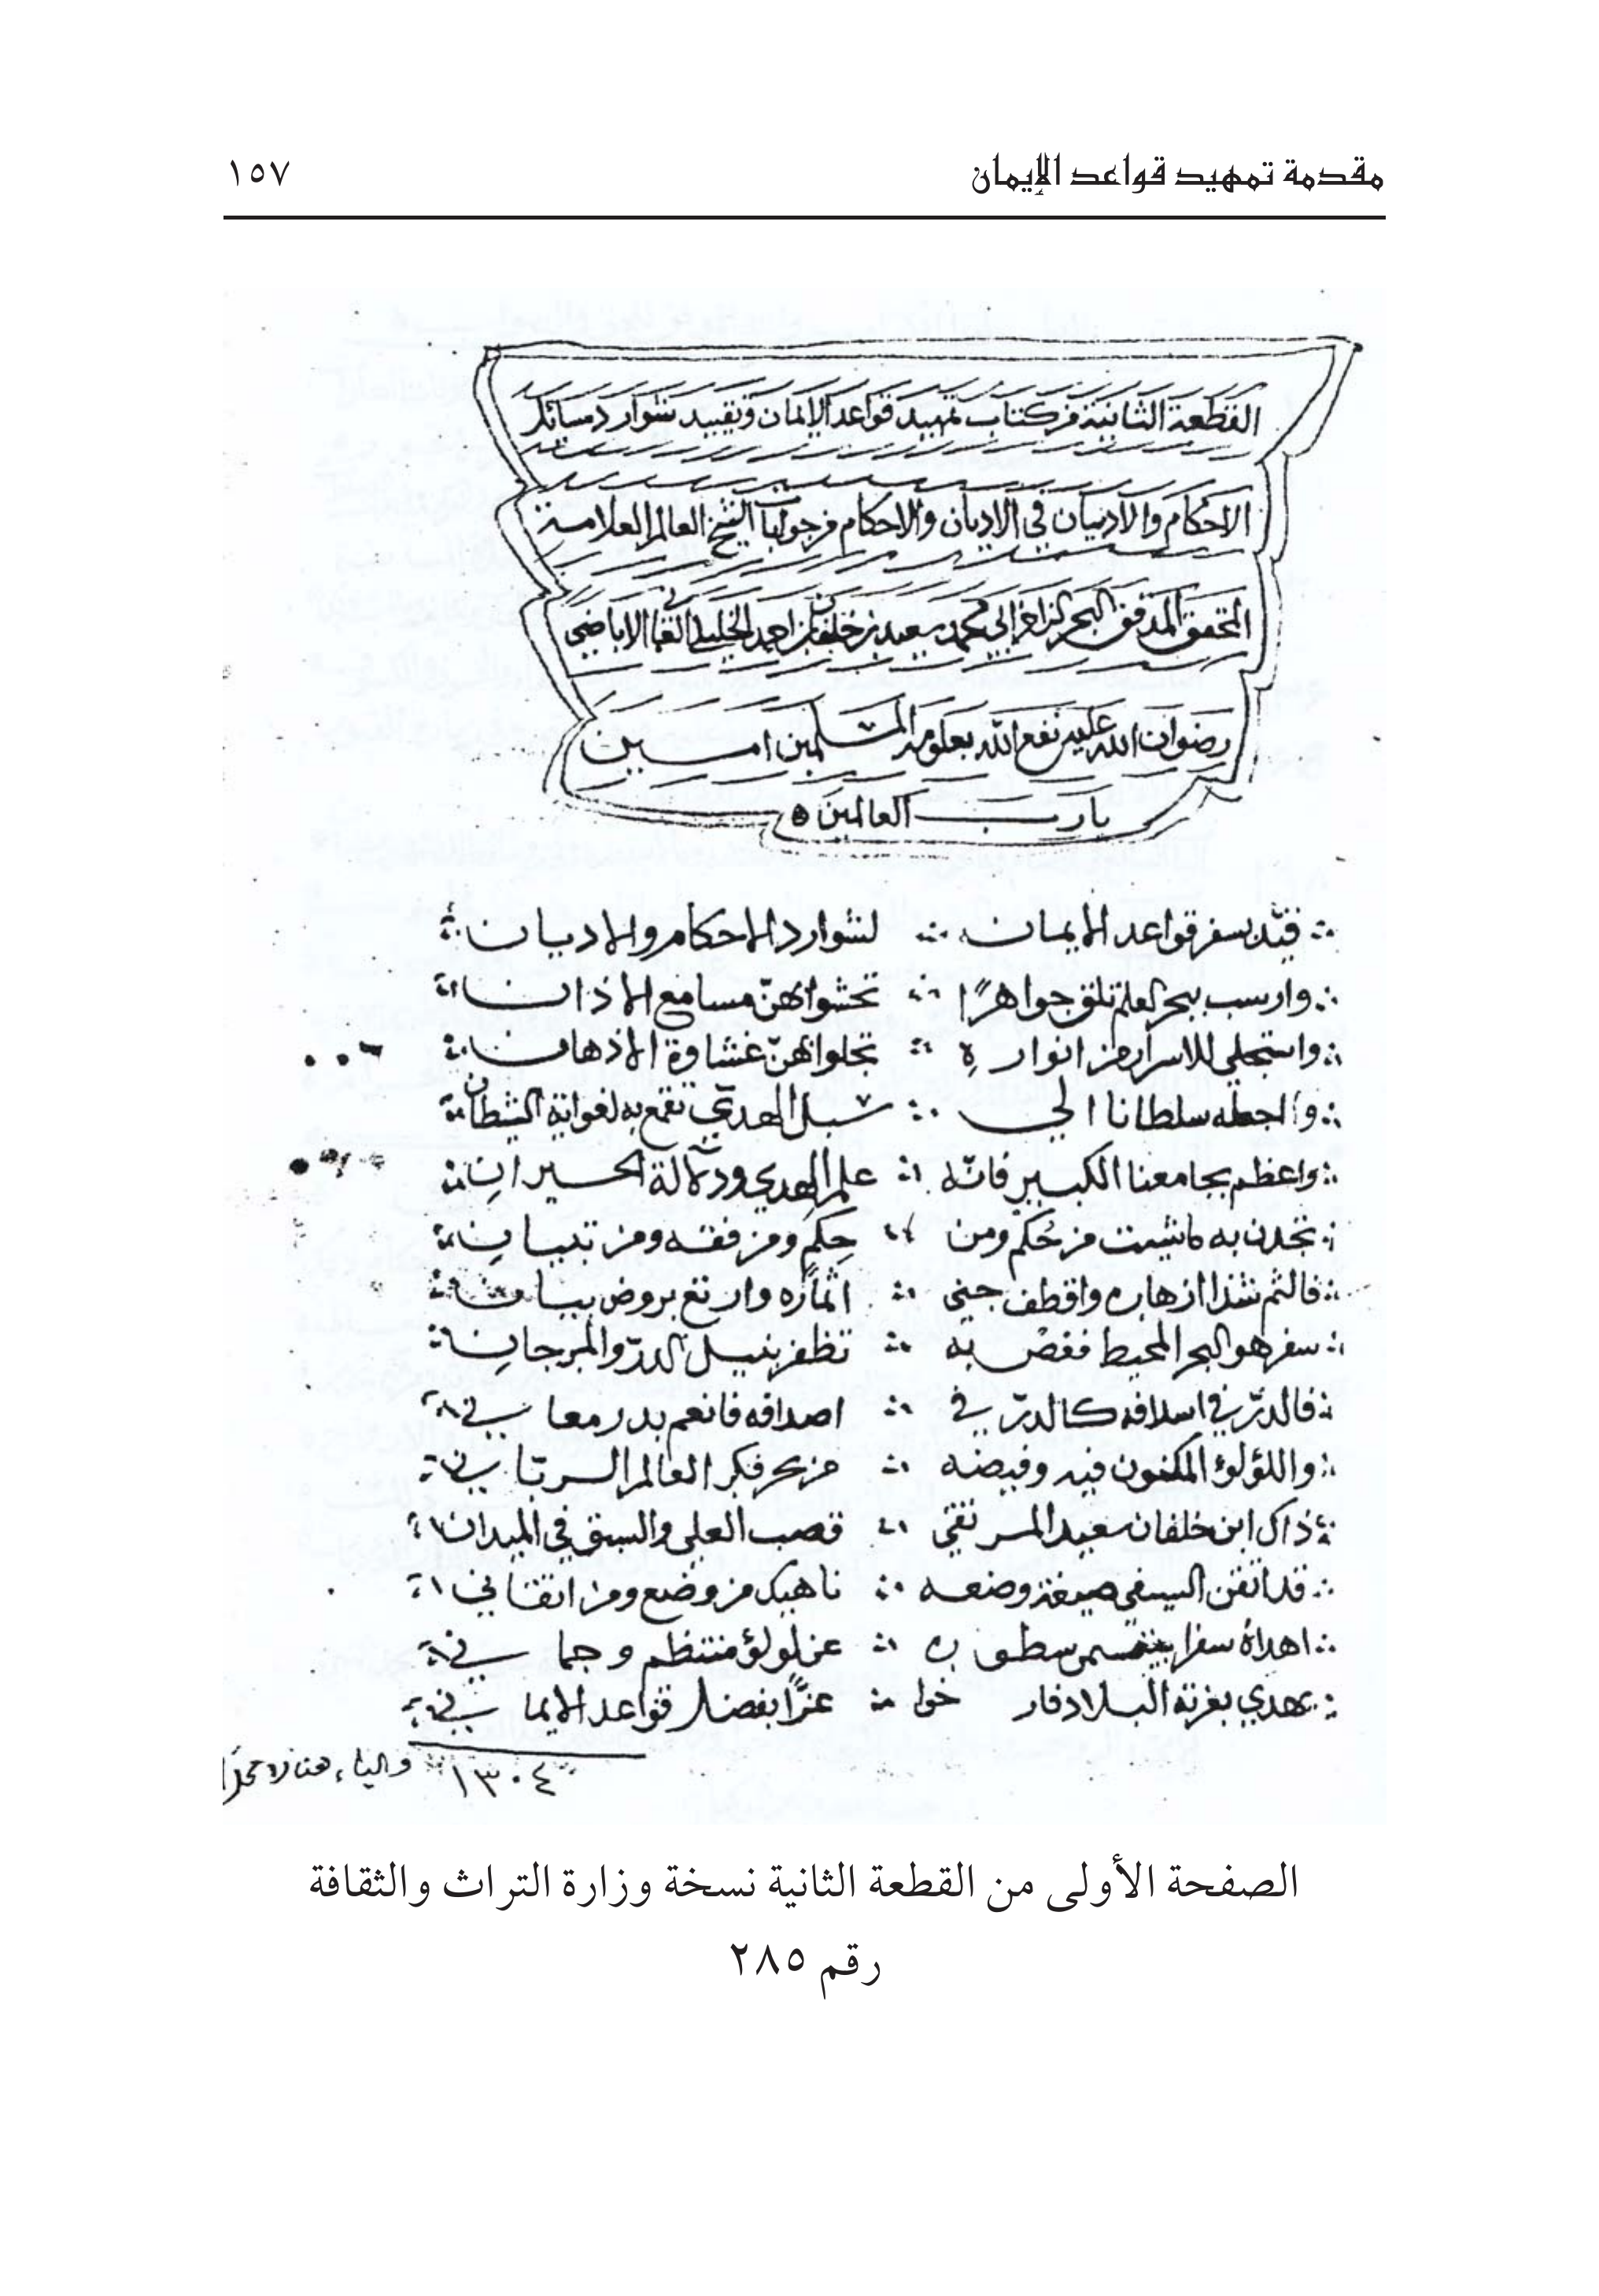 مقدمة تمهيد قواعد الإيمان ١٥٧
القطعة الثانية من كتاب تمهيد قواعد الايمان وتقييد شوارد مسائل
الاحكام والاديان في الاديان والاحكام من جوابات الشيخ العالم العلامة
المحقق المدقق البحر الزاخر ابي محمد سعيد بن خلفان بن احمد الخليلي الاباضي
رضوان الله عليه نفع الله بعلومه المسلمين امين
يا رب العالمين
قيّد بسفر قواعد الايمان لشوارد الاحكام والاديان
وارسب ببحر العلم تلق جواهرًا تحشو بهنّ مسامع الاذان
واستجلي للاسرار من انواره تجلو بهنّ غشاوة الاذهان
واجعله سلطانا الى سبل الهدى تقمع به لغواية الشيطان
واعظم بجامعنا الكبير فانّه علم الهدى ودلالة الحيران
تجدن به ما شئت من حُكم ومن حِكَم ومن فقه ومن تبيان
فالثم شذا ازهاره واقطف جنى اثماره وارتع بروض بيان
سفر هو البحر المحيط فغصْ به تظفر بنيل الدرّ والمرجان
فالدرّ في اسلافه كالدرّ في اصدافه فانعم بدر معاني
واللؤلؤ المكنون فيه وفيضه من بحر فكر العالم الربّاني
ذاك ابن خلفان سعيد المرتقي قصب العلى والسبق في الميدان
قد اتقن السيفي صيغة وضعه ناهيك من وضع ومن اتقاني
اهداه سفرا سطوره عن لولؤ منتظم وجماني
يهدي بغرته البلاد فار خوا عزًّا بفضل قواعد الايماني
١٣٠٤ والياء هنا
الصفحة الأولى من القطعة الثانية نسخة وزارة التراث والثقافة
رقم ٢٨٥